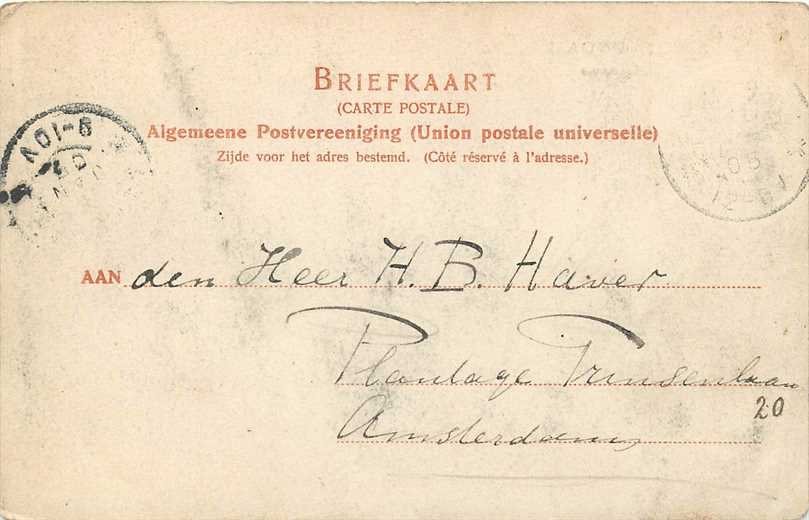 BRIEFKAART
(CARTE POSTALE)
Algemeene Postvereeniging (Union postale universelle)
Zijde voor het adres bestemd. (Côté réservé à l'adresse.)
9-10V
12-6
AAN den Heer H. B. Haver
Plantage Prinsenlaan
20
Amsterdam